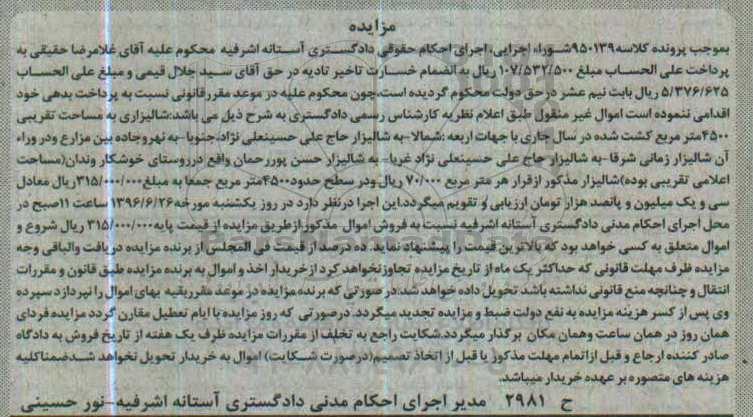 مزایده
بموجب پرونده کلاسه ۹۵۰۱۳۹شوراء اجرایی، اجرای احکام حقوقی دادگستری آستانه اشرفیه محکوم علیه آقای غلامرضا حقیقی به
پرداخت علی الحساب مبلغ ۱۰۷/۵۳۲/۵۰۰ ریال به انضمام خسارت تاخیر تادیه در حق آقای سید جلال قیمی و مبلغ علی الحساب
۵/۳۷۶/۶۲۵ ریال بابت نیم عشر درحق دولت محکوم گردیده است،چون محکوم علیه در موعد مقررقانونی نسبت به پرداخت بدهی خود
اقدامی ننموده است اموال غیر منقول طبق اعلام نظریه کارشناس رسمی دادگستری به شرح ذیل می باشد:شالیزاری به مساحت تقریبی
۴۵۰۰متر مربع کشت شده در سال جاری با جهات اربعه :شمالا- به شالیزار حاج علی حسینعلی نژاد،جنوبا -به نهروجاده بین مزارع ودر وراء
آن شالیزار زمانی شرقا -به شالیزار حاج علی حسینعلی نژاد غربا- به شالیزار حسن پوررحمان واقع درروستای خوشکار وندان(مساحت
اعلامی تقریبی بوده)شالیزار مذکور ازقرار هر متر مربع ۷۰/۰۰۰ ریال ودر سطح حدود۴۵۰۰متر مربع جمعا به مبلغ۳۱۵/۰۰۰/۰۰۰ریال معادل
سی و یک میلیون و پانصد هزار تومان ارزیابی و تقویم میگردد.این اجرا درنظر دارد در روز یکشنبه مورخه۱۳۹۶/۶/۲۶ ساعت ۱۱صبح در
محل اجرای احکام مدنی دادگستری آستانه اشرفیه نسبت به فروش اموال مذکور ازطریق مزایده از قیمت پایه۳۱۵/۰۰۰/۰۰۰ ریال شروع و
اموال متعلق به کسی خواهد بود که بالاترین قیمت را پیشنهاد نماید. ده درصد از قیمت فی المجلس از برنده مزایده دریافت والباقی وجه
مزایده ظرف مهلت قانونی که حداکثر یک ماه از تاریخ مزایده تجاوز نخواهد کرد ازخریدار اخذ و اموال به برنده مزایده طبق قانون و مقررات
انتقال و چنانچه منع قانونی نداشته باشد تحویل داده خواهد شد.در صورتی که برنده مزایده در موعد مقرربقیه بهای اموال را نپردازد سپرده
وی پس از کسر هزینه مزایده به نفع دولت ضبط و مزایده تجدید میگردد.درصورتی که روز مزایده با ایام تعطیل مقارن گردد مزایده فردای
همان روز در همان ساعت وهمان مکان برگذار میگردد.شکایت راجع به تخلف از مقررات مزایده ظرف یک هفته از تاریخ فروش به دادگاه
صادر کننده ارجاع و قبل ازاتمام مهلت مذکور یا قبل از اتخاذ تصمیم(درصورت شکایت) اموال به خریدار تحویل نخواهد شد،ضمناکلیه
هزینه های متصوره بر عهده خریدار میباشد.
ح ۲۹۸۱ مدیر اجرای احکام مدنی دادگستری آستانه اشرفیه-نور حسینی